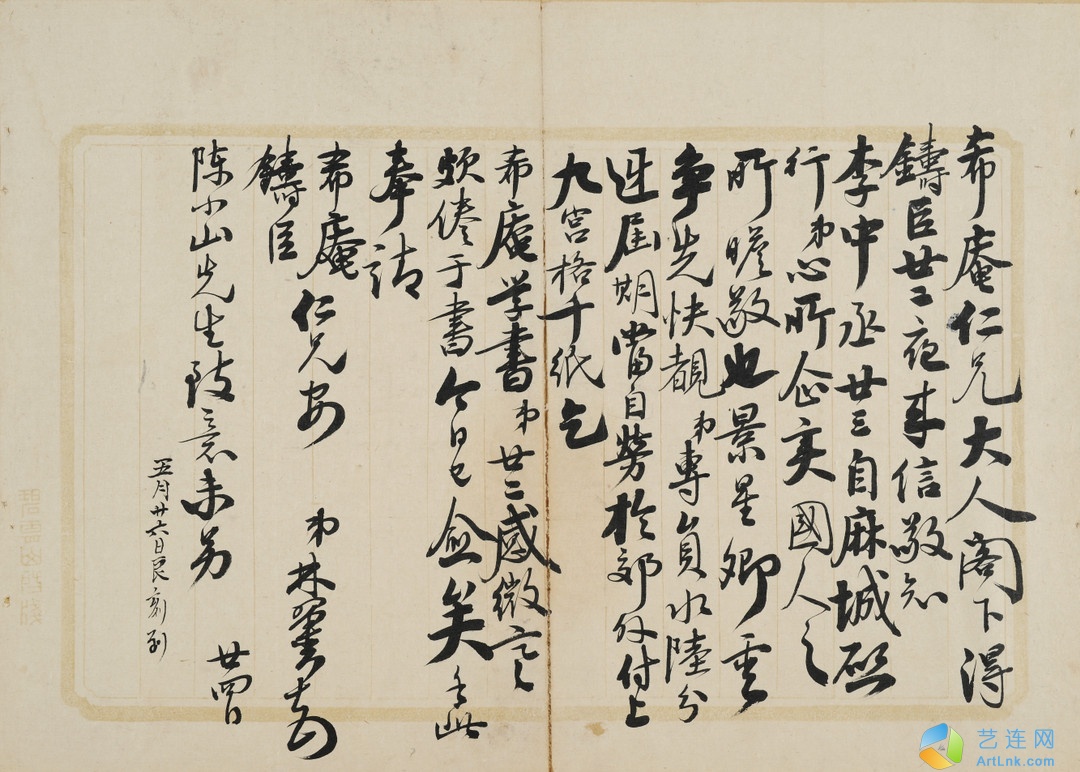 希庵仁兄大人閣下得
鑄臣廿二夜來信敬知
李中丞廿三自麻城啟
行弟心所企亦國人之
所瞻敬也景星卿雲
爭先快覩弟專員水陸分
迎屆期當自勞於郊外付上
九宮格千紙乞
希庵學書弟廿二感微寒
頗倦于書今日已愈矣手此
奉請
希庵仁兄安
鑄臣
弟林翼頓首
陳小山先生致意未另
廿四日
五月廿六日辰刻到
艺连网
ArtLnk.com